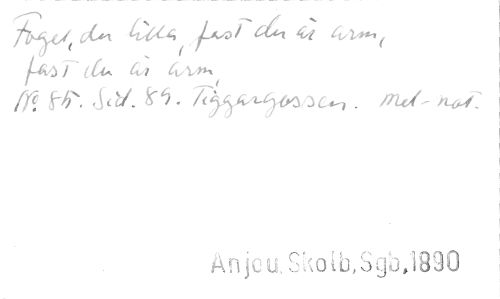 Fogel, du lilla, fast du är arm,
fast du är arm,
No. 85. Sid. 89. Tiggargossen. mel-not.
Anjou, Skolb, Sgb, 1890